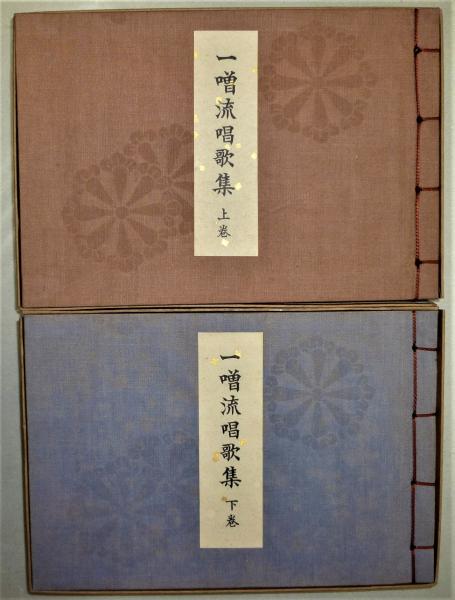 一噌流唱歌集 上巻
一噌流唱歌集 下巻